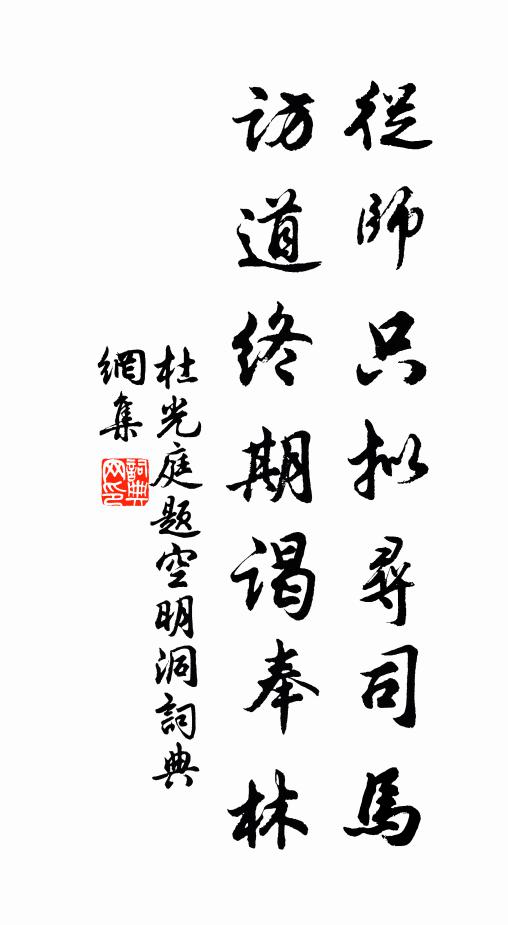 從師只擬尋司馬
訪道終期謁奉林
杜光庭題空明洞詞典
網集
詞典網印